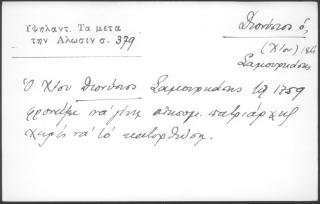 Ὑψηλάντ. Τα μετα
την Αλωσιν σ. 379
Διονύσιος ὁ,
(Χίου)
Σαμουρκάσης
Ὁ Χίου Διονύσιος Σαμουρκάσης τῷ 1759
νά γίνῃ οἰκουμ. πατριάρχης
χωρίς νά τό κατορθώσῃ.